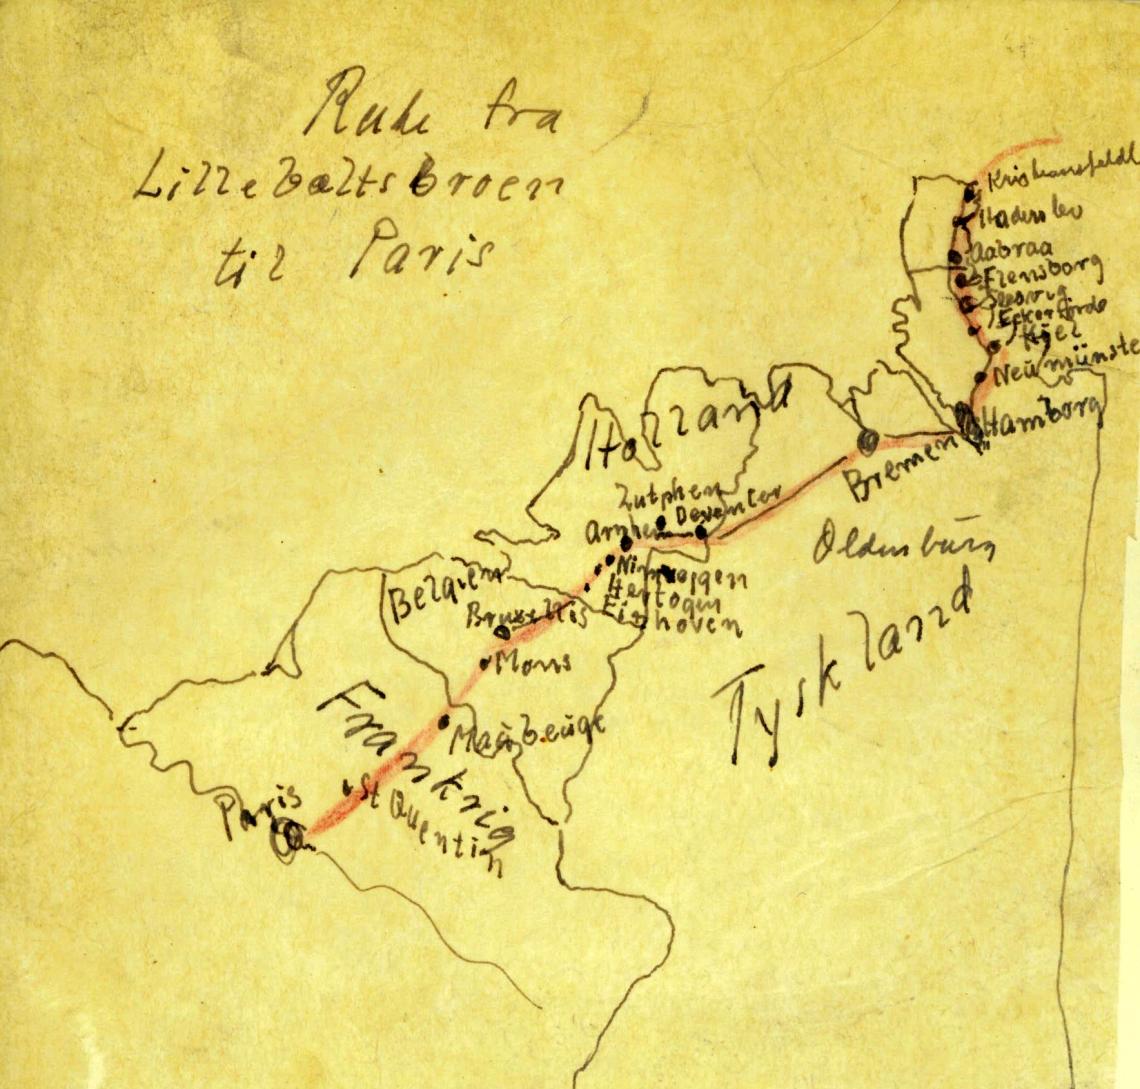 Rute fra
Lillebæltsbroen
til Paris
Kristiansfeldt
Haderslev
Aabraa
Flensborg
Slesvig
Eckernförde
Kiel
Neümünster
Hamborg
Bremen
Holland
Zutphen
Deventer
Arnhem
Nimwegen
Hertogen
Eindhoven
Oldenbürg
Belgien
Bruxelles
Mons
Tyskland
Frankrig
Maübeüge
St Quentin
Paris